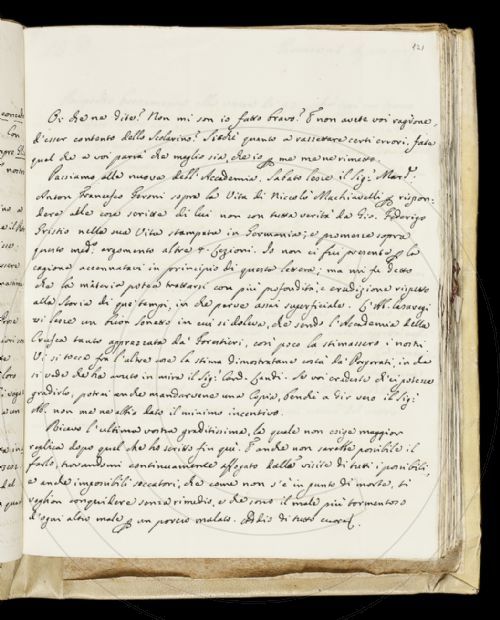 121
Di che ne dite? Non mi son io fatto bravo? E non avete voi ragione
d'esser contento dello Scolarino? Sicchè quanto a rassettare certi errori, fate
quel che a voi parrà che meglio sia, che io me ne rimetto.
Passiamo alle nuove dell'Accademia. Sabato lesse il Sig.
Anton Francesco sopra la Vita di Niccolò Machiavelli rispon-
dere alle cose scritte di lui non son tutta verità da Gio. Federigo
nella sua Vita stampata in Germania; e promesse sopra
questo med.º argomento altre 4 Lezioni. Io non ci fui presente la
cagione accennatavi in principio di questa lettera; ma mi fu detto
che la materia potea trattarsi con più profondità e erudizione rispetto
alla Storia di que' tempi, in che parve assai superficiale.
vi lesse un suo Sonetto in cui si doleva, che sendo l'Accademia della
Crusca tanto apprezzata da' Forestieri, così poco la stimassero i nostri
Vi si tocca fra l'altre cose la stima dimostratane costà da' in che
si vede che ha avuto in mira il Sig. Card. Se voi credeste ch'ei potesse
gradirlo, potrei anche mandarvene una Copia, benchè a dir vero il Sig.
non me ne abbia dato il minimo incentivo.
Ricevo l'ultima vostra graditissima, la quale non esige maggior
replica dopo quel che ho scritto fin qui. E anche non sarebbe possibile il
farlo, trovandomi continuamente affogato dalle visite di tutti i possibili,
e anche impossibili seccatori, che come non s'è in punto di morte, ti
voglion conquidere senza rimedio, e che sono il male più tormentoso
d'ogni altro male un povero malato. Addio di tutto cuore.